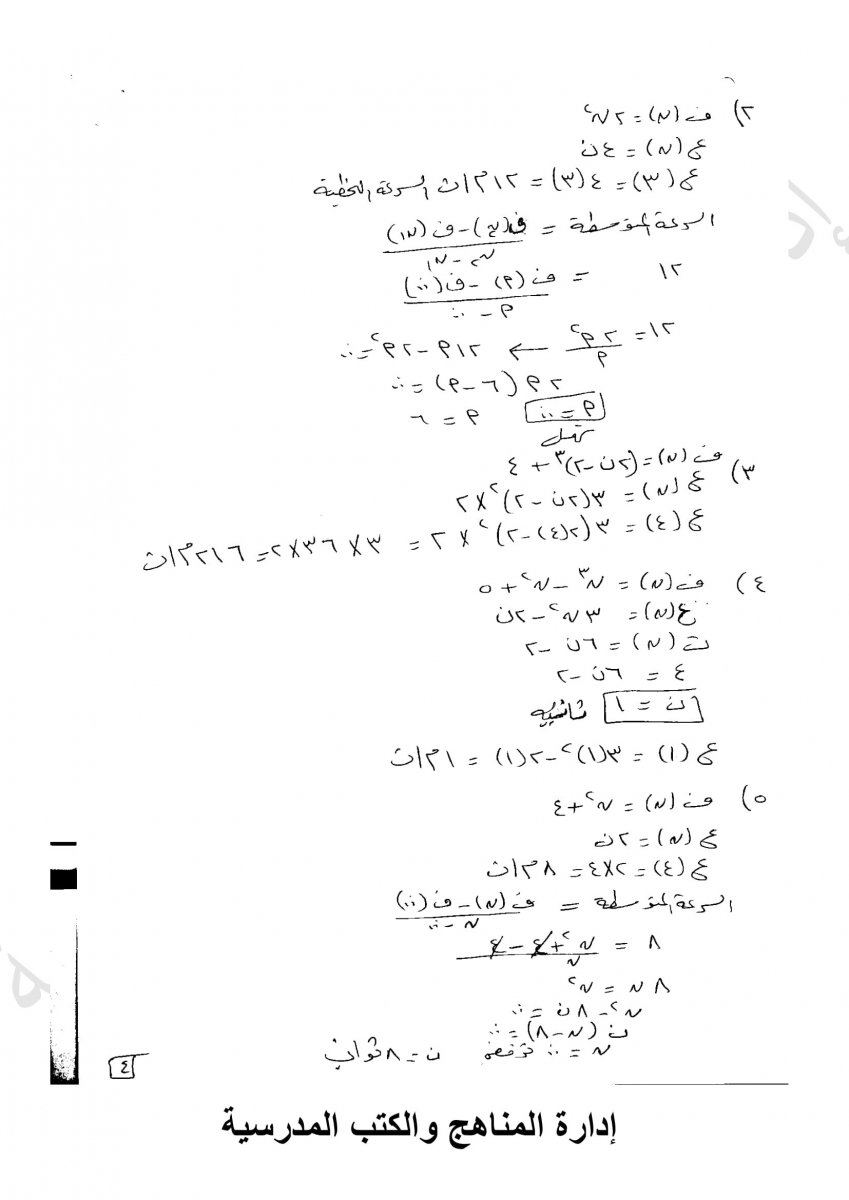 ٢) ف(ن) = ٢ن٢
ع(ن) = ٤ن
ع(٣) = ٤(٣) = ١٢ م/ث السرعة اللحظية
السرعة المتوسطة = ف(ن٢) - ف(ن١) / ن٢ - ن١
١٢ = ف(م) - ف(٠) / م - ٠
١٢ = ٢م٢ / م ← ١٢م - ٢م٢ = ٠
٢م(٦ - م) = ٠
م = ٠ م = ٦
تهمل
٣) ف(ن) = (٢ن - ٢)٣ + ٤
ع(ن) = ٣(٢ن - ٢)٢ × ٢
ع(٤) = ٣(٢(٤) - ٢)٢ × ٢ = ٣ × ٣٦ × ٢ = ٢١٦ م/ث
٤) ف(ن) = ن٣ - ن٢ + ٥
ع(ن) = ٣ن٢ - ٢ن
ت(ن) = ٦ن - ٢
٤ = ٦ن - ٢
ن = ١ ثانية
ع(١) = ٣(١)٢ - ٢(١) = ١ م/ث
٥) ف(ن) = ن٢ + ٤
ع(ن) = ٢ن
ع(٤) = ٢×٤ = ٨ م/ث
السرعة المتوسطة = ف(ن) - ف(٠) / ن - ٠
٨ = ن٢ + ٤ - ٤ / ن
٨ن = ن٢
ن٢ - ٨ن = ٠
ن(ن - ٨) = ٠
ن = ٠ ترفض ن = ٨ ثواني
٤
إدارة المناهج والكتب المدرسية